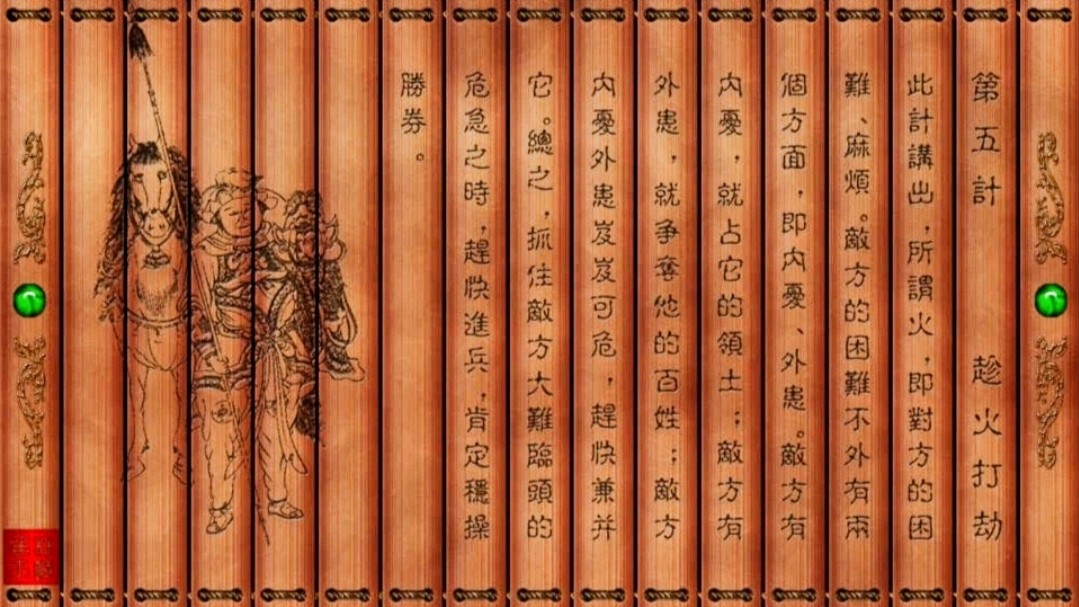 第五計 趁火打劫
此計講出，所謂火，即對方的困
難、麻煩。敵方的困難不外有兩
個方面，即內憂、外患。敵方有
內憂，就占它的領土；敵方有
外患，就争奪他的百姓；敵方
內憂外患岌岌可危，趕快兼并
它。總之，抓住敵方大難臨頭的
危急之時，趕快進兵，肯定穩操
勝券。